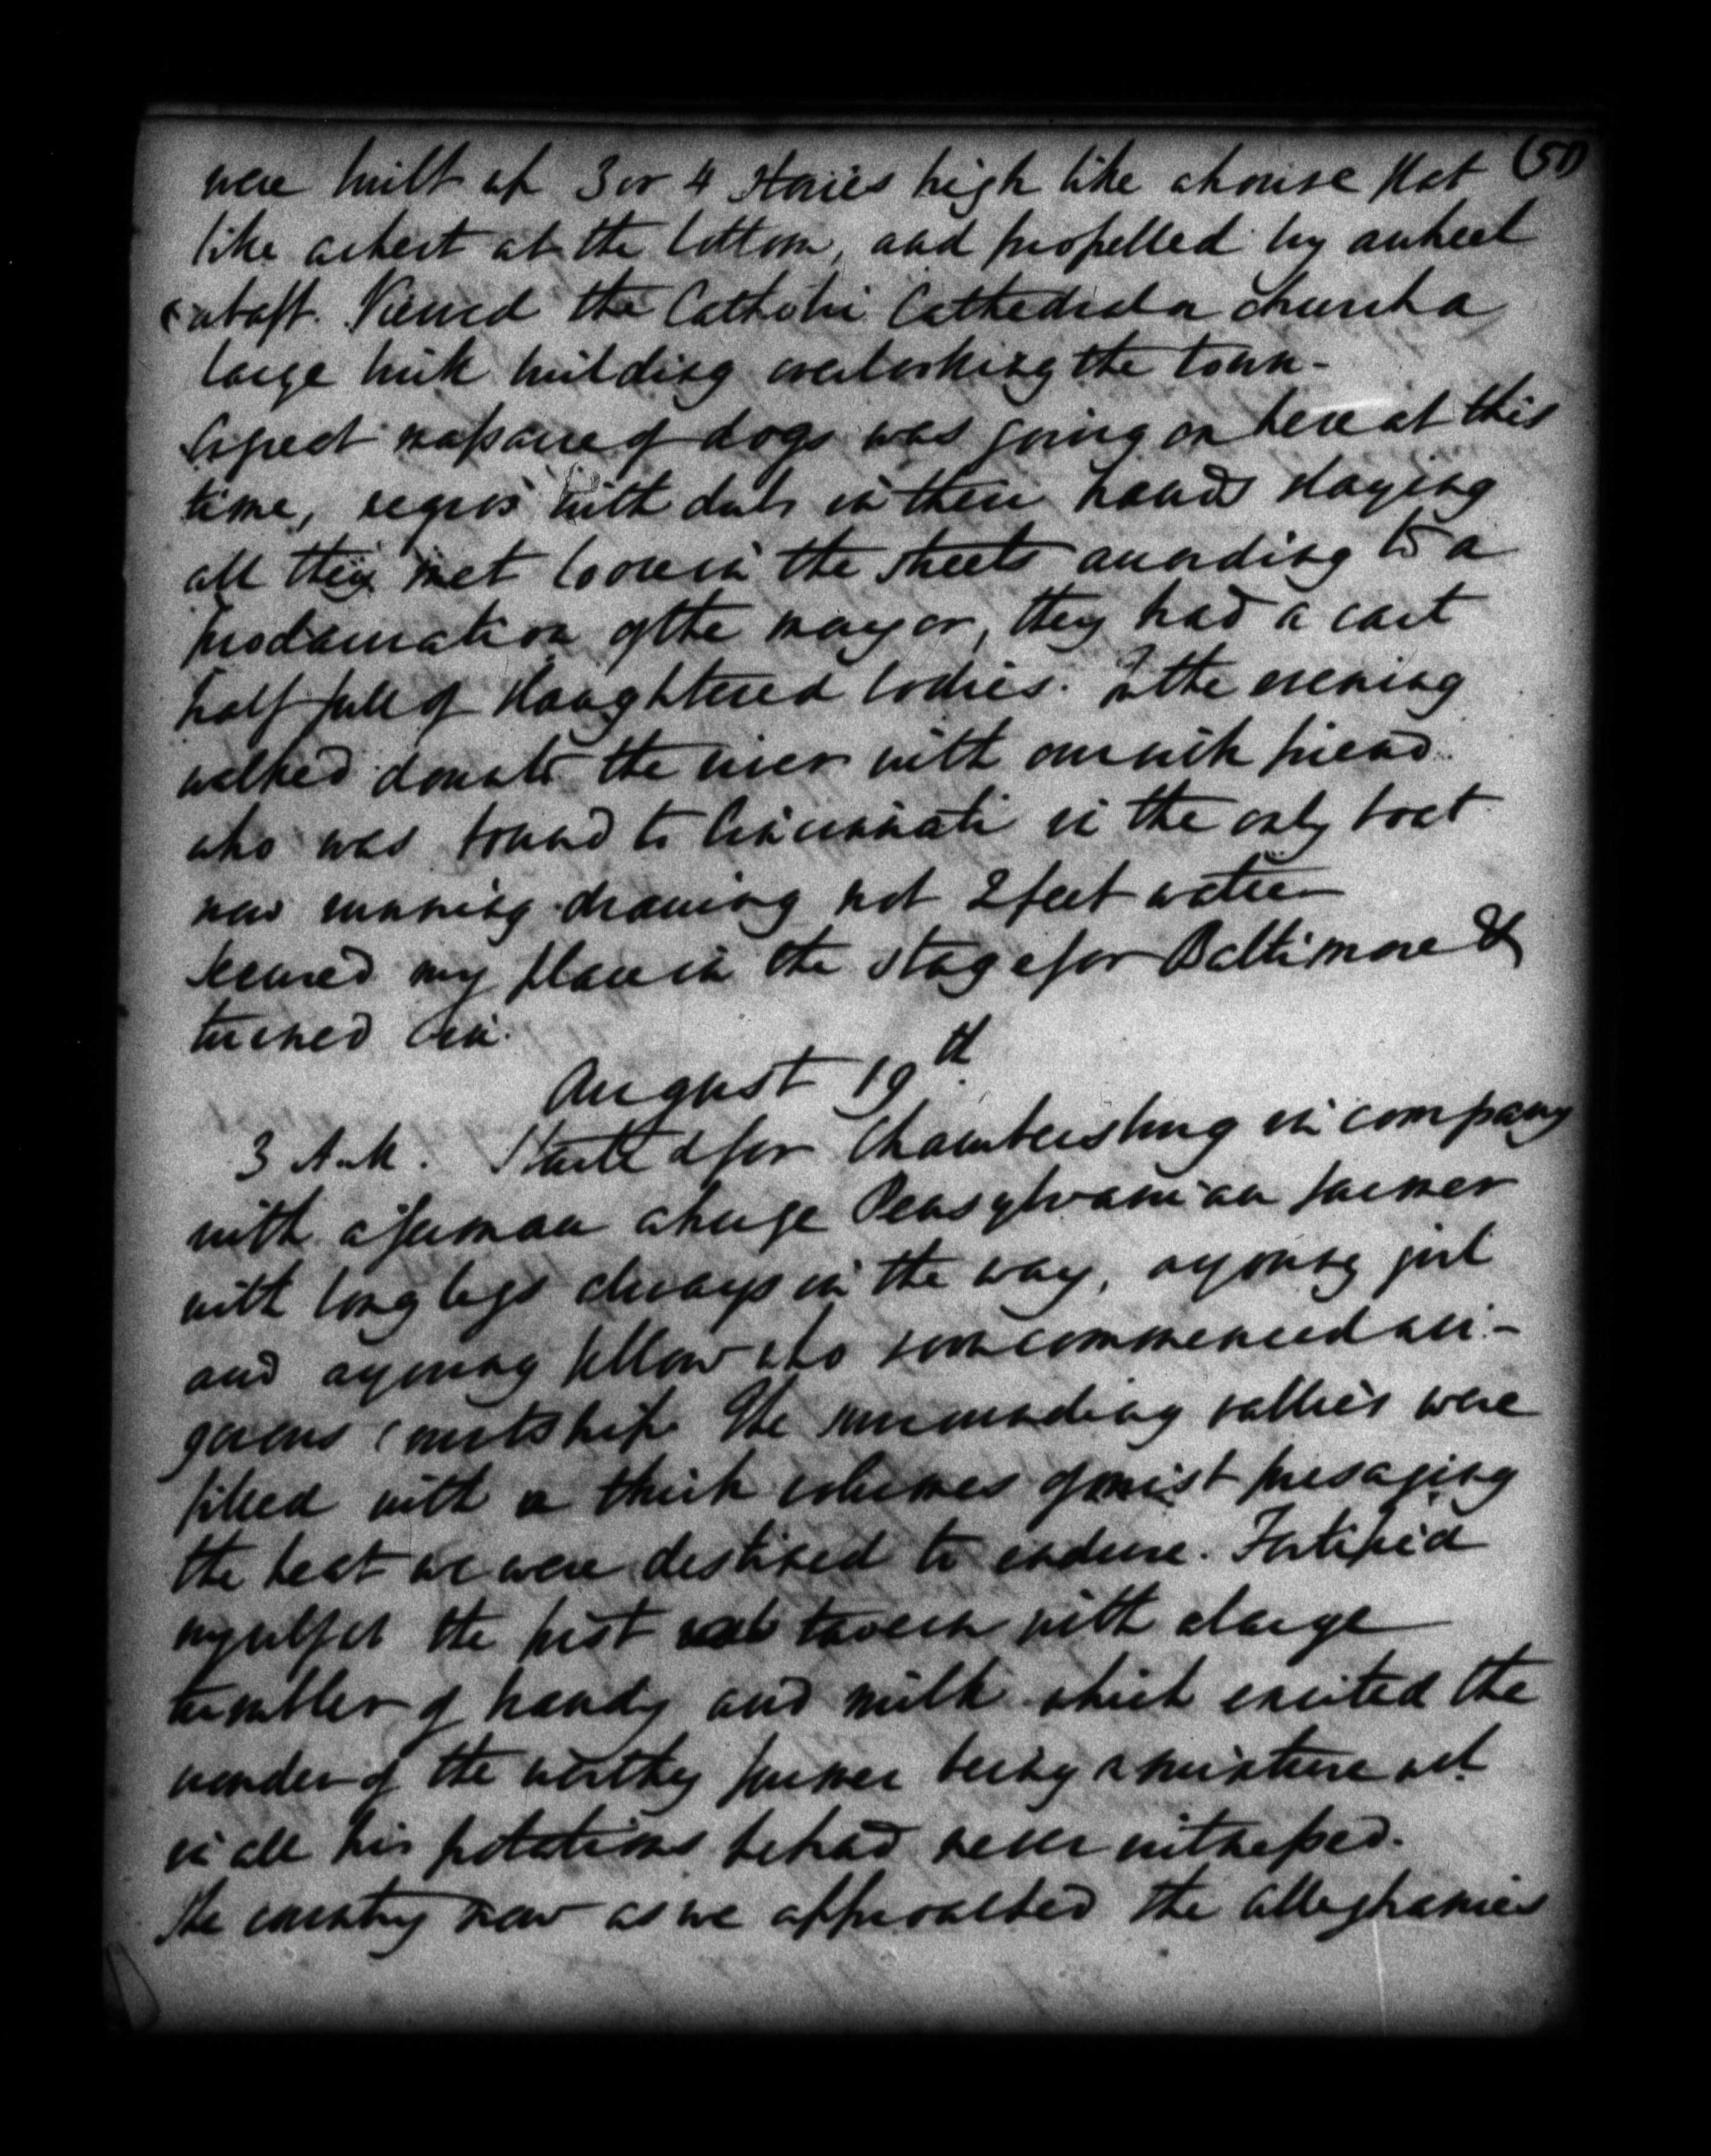 (51)
were built up 3 or 4 stories high like a house flat
like a chest at the bottom, and propelled by a wheel
abaft. Viewed the Catholic Cathedral a church a
large brick building overlooking the town -
A great massacre of dogs was going on here at this
time, negros with clubs in their hands slaying
all they met loose in the streets according to a
proclamation of the mayor, they had a cart
half full of slaughtered bodies. In the evening
walked down to the river with our rich friend
who was bound to Cincinnati in the only boat
now running drawing not 2 feet water
Secured my place in the stage for Baltimore &
turned in.
August 19th
3 A.M. Started for Chambersburg in company
with a german a huge Pensylvanian farmer
with long legs always in the way, a young girl
and a young fellow who soon commenced a vi-
gorous courtship. The surrounding vallies were
filled with a thick volumes of mist presaging
the heat we were destined to endure. Fortified
myself at the first tavern with a large
tumbler of brandy and milk which excited the
wonder of the worthy farmer being a mixture wh
in all his potations he had never witnessed.
The country now as we approached the alleghanies